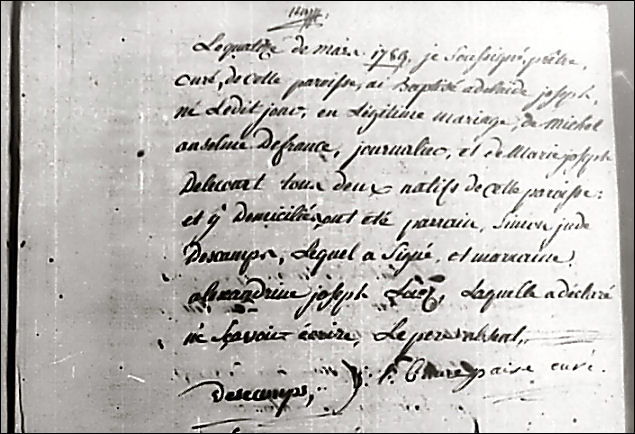 Le quatorze de mars 1789, je soussigné, prêtre,
curé, de cette paroisse, ai Baptisé adelaïde joseph,
né Ledit jour, en Légitime mariage, de michel
anselme Defrance, journalier, et de Marie joseph
Delecourt tous deux natifs de cette paroisse:
et y Domiciliés, ont été parrain, Simon jude
Descamps, Lequel a Signé, et marraine,
alexandrine joseph, Laquelle a déclaré
ne Sçavoir écrire, Le pere absent,
curé.
Descamps,